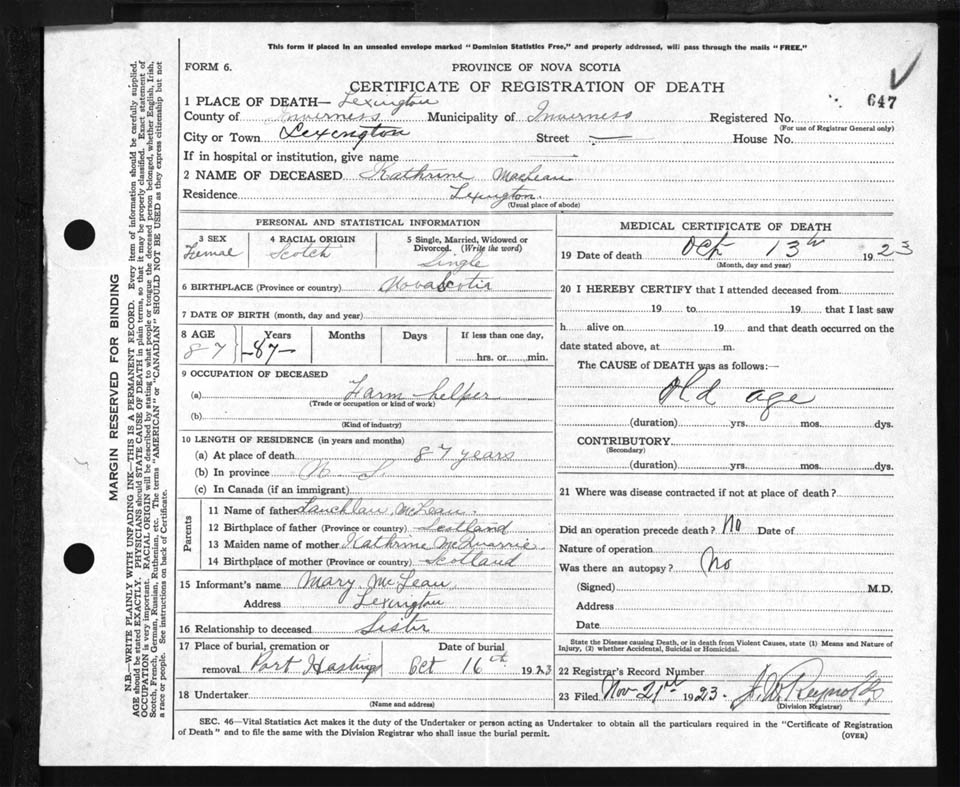 This form if placed in an unsealed envelope marked "Dominion Statistics Free," and properly addressed, will pass through the mails "FREE."
FORM 6. PROVINCE OF NOVA SCOTIA
CERTIFICATE OF REGISTRATION OF DEATH
647
1 PLACE OF DEATH— Lexington
County of Inverness Municipality of Inverness Registered No.
(For use of Registrar General only)
City or Town Lexington Street — House No.
If in hospital or institution, give name
2 NAME OF DECEASED Kathrine MacLean
Residence Lexington
(Usual place of abode)
PERSONAL AND STATISTICAL INFORMATION
3 SEX 4 RACIAL ORIGIN 5 Single, Married, Widowed or Divorced. (Write the word)
Femal Scotch Single
6 BIRTHPLACE (Province or country) Nova Scotia
7 DATE OF BIRTH (month, day and year)
8 AGE Years Months Days If less than one day,
87 —87— hrs. or min.
9 OCCUPATION OF DECEASED
(a) Farm helper
(Trade or occupation or kind of work)
(b)
(Kind of industry)
10 LENGTH OF RESIDENCE (in years and months)
(a) At place of death 87 years
(b) In province N. S.
(c) In Canada (if an immigrant)
Parents
11 Name of father Lauchlan McLean
12 Birthplace of father (Province or country) Scotland
13 Maiden name of mother Kathrine McQuarrie
14 Birthplace of mother (Province or country) Scotland
15 Informant's name Mary McLean
Address Lexington
16 Relationship to deceased Sister
17 Place of burial, cremation or removal Date of burial
Port Hastings Oct 16th 1923
18 Undertaker
(Name and address)
MEDICAL CERTIFICATE OF DEATH
19 Date of death Oct 13th 1923
(Month, day and year)
20 I HEREBY CERTIFY that I attended deceased from
19 to 19 that I last saw
h alive on 19 and that death occurred on the
date stated above, at m.
The CAUSE of DEATH was as follows:—
Old age
(duration) yrs. mos. dys.
CONTRIBUTORY
(Secondary)
(duration) yrs. mos. dys.
21 Where was disease contracted if not at place of death?
Did an operation precede death? No Date of
Nature of operation
Was there an autopsy? No
(Signed) M.D.
Address
Date
State the Disease causing Death, or in death from Violent Causes, state (1) Means and Nature of
Injury, (2) whether Accidental, Suicidal or Homicidal.
22 Registrar's Record Number
23 Filed Nov 21st 1923. J. W Reynolds
(Division Registrar)
SEC. 46—Vital Statistics Act makes it the duty of the Undertaker or person acting as Undertaker to obtain all the particulars required in the "Certificate of Registration
of Death" and to file the same with the Division Registrar who shall issue the burial permit.
(OVER)
MARGIN RESERVED FOR BINDING
N.B.—WRITE PLAINLY WITH UNFADING INK—THIS IS A PERMANENT RECORD. Every item of information should be carefully supplied.
AGE should be stated EXACTLY. PHYSICIANS should STATE CAUSE OF DEATH in plain terms, so that it may be properly classified. Exact statement of
OCCUPATION is very important. RACIAL ORIGIN will be described by stating to what people or tongue the deceased person belonged, whether English, Irish,
Scotch, French, German, Russian, Ruthenian, etc. The terms "AMERICAN" or "CANADIAN" SHOULD NOT BE USED as they express citizenship but not
a race or people. See instructions on back of Certificate.